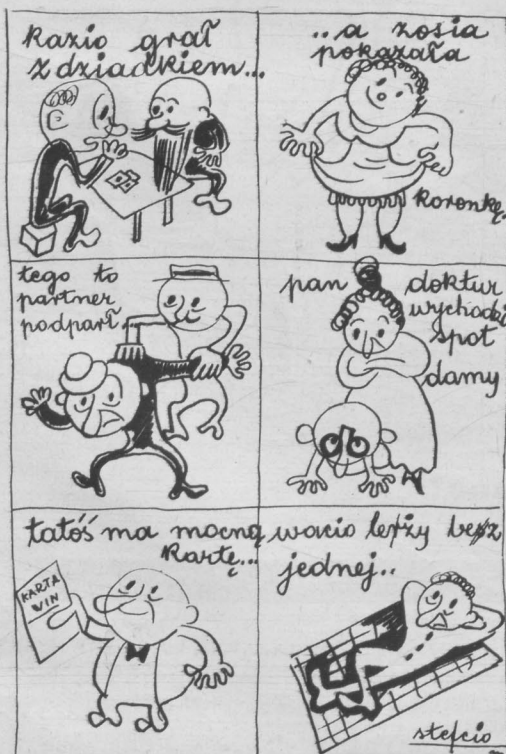 kazio grał
z dziadkiem...
..a zosia
pokazała
koronkę.
tego to
partner
podparł
pan doktur
wychodzi
spot
damy
tatóś ma mocną
kartę...
KARTA
WIN
wacio leży besz
jednej..
stefcio